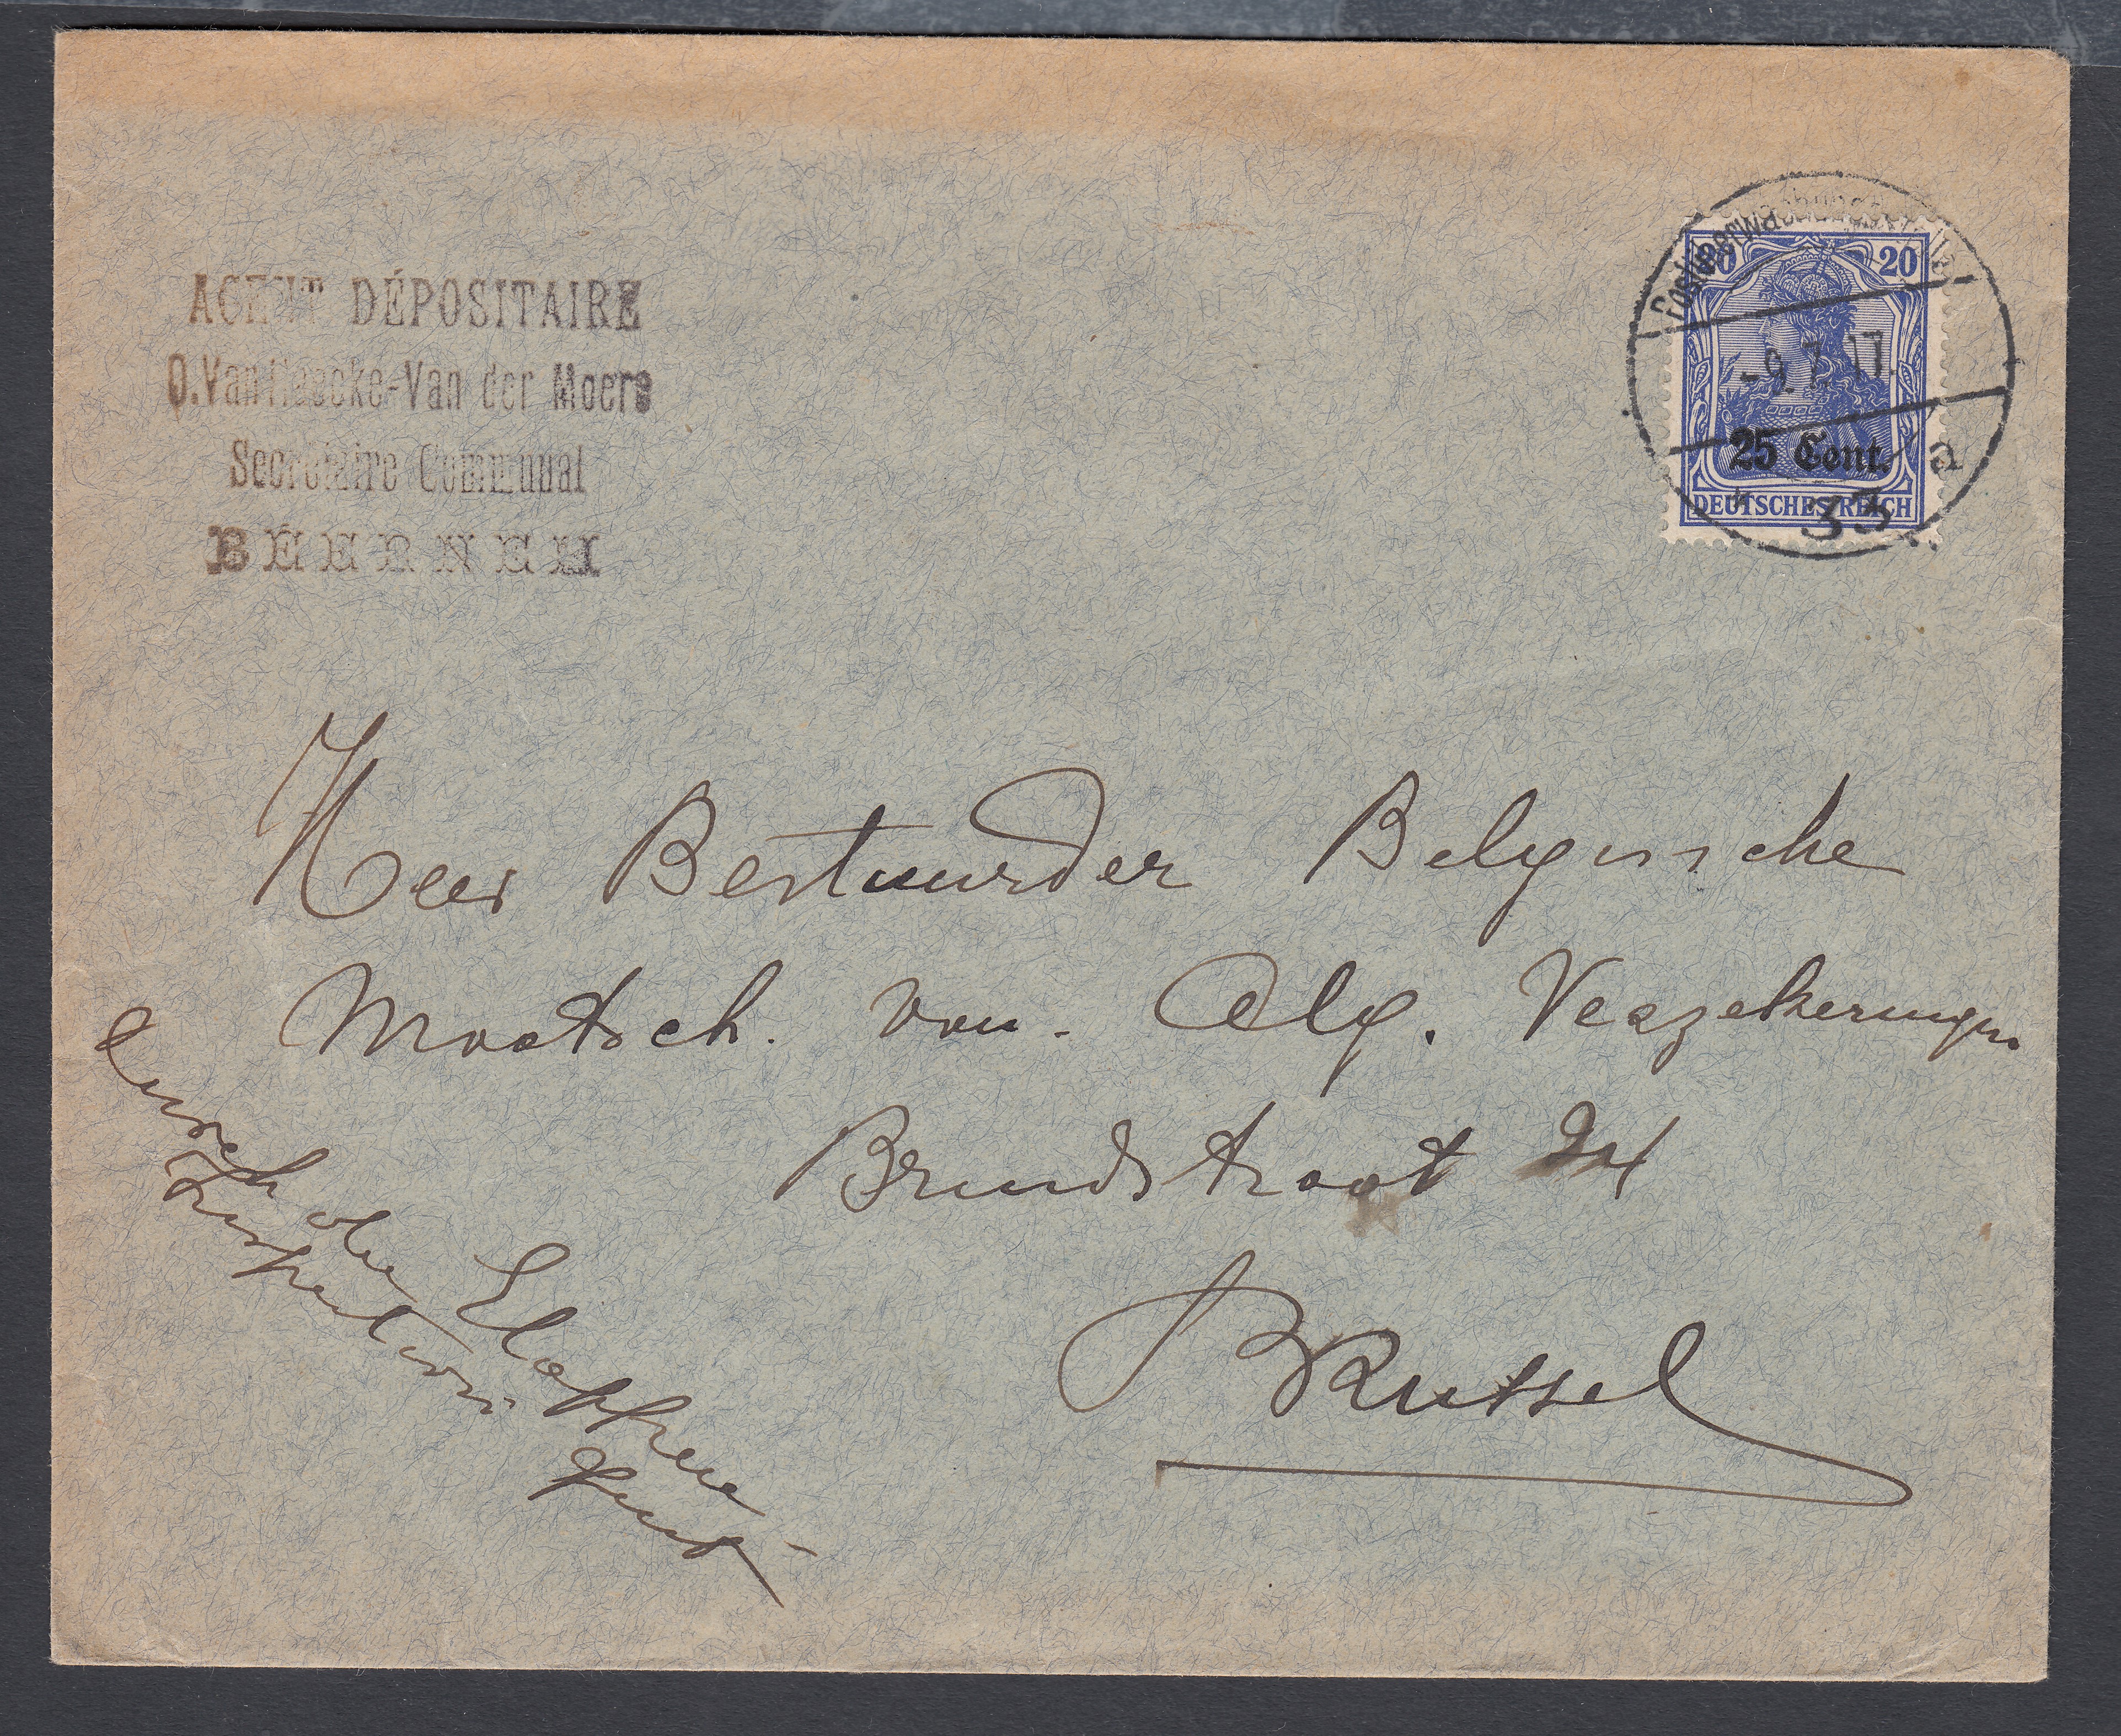 AGENT DÉPOSITAIRE
O. Van Haecke-Van der Moere
Secrétaire Communal
BEERNEM
Postüberwachungsstelle
20 20
-9.7.17.
25 Cent.
a
* 33
DEUTSCHES REICH
Heer Bestuurder Belgische
Maatsch. van. Alg. Verzekeringen
Brandstraat 24
Brussel